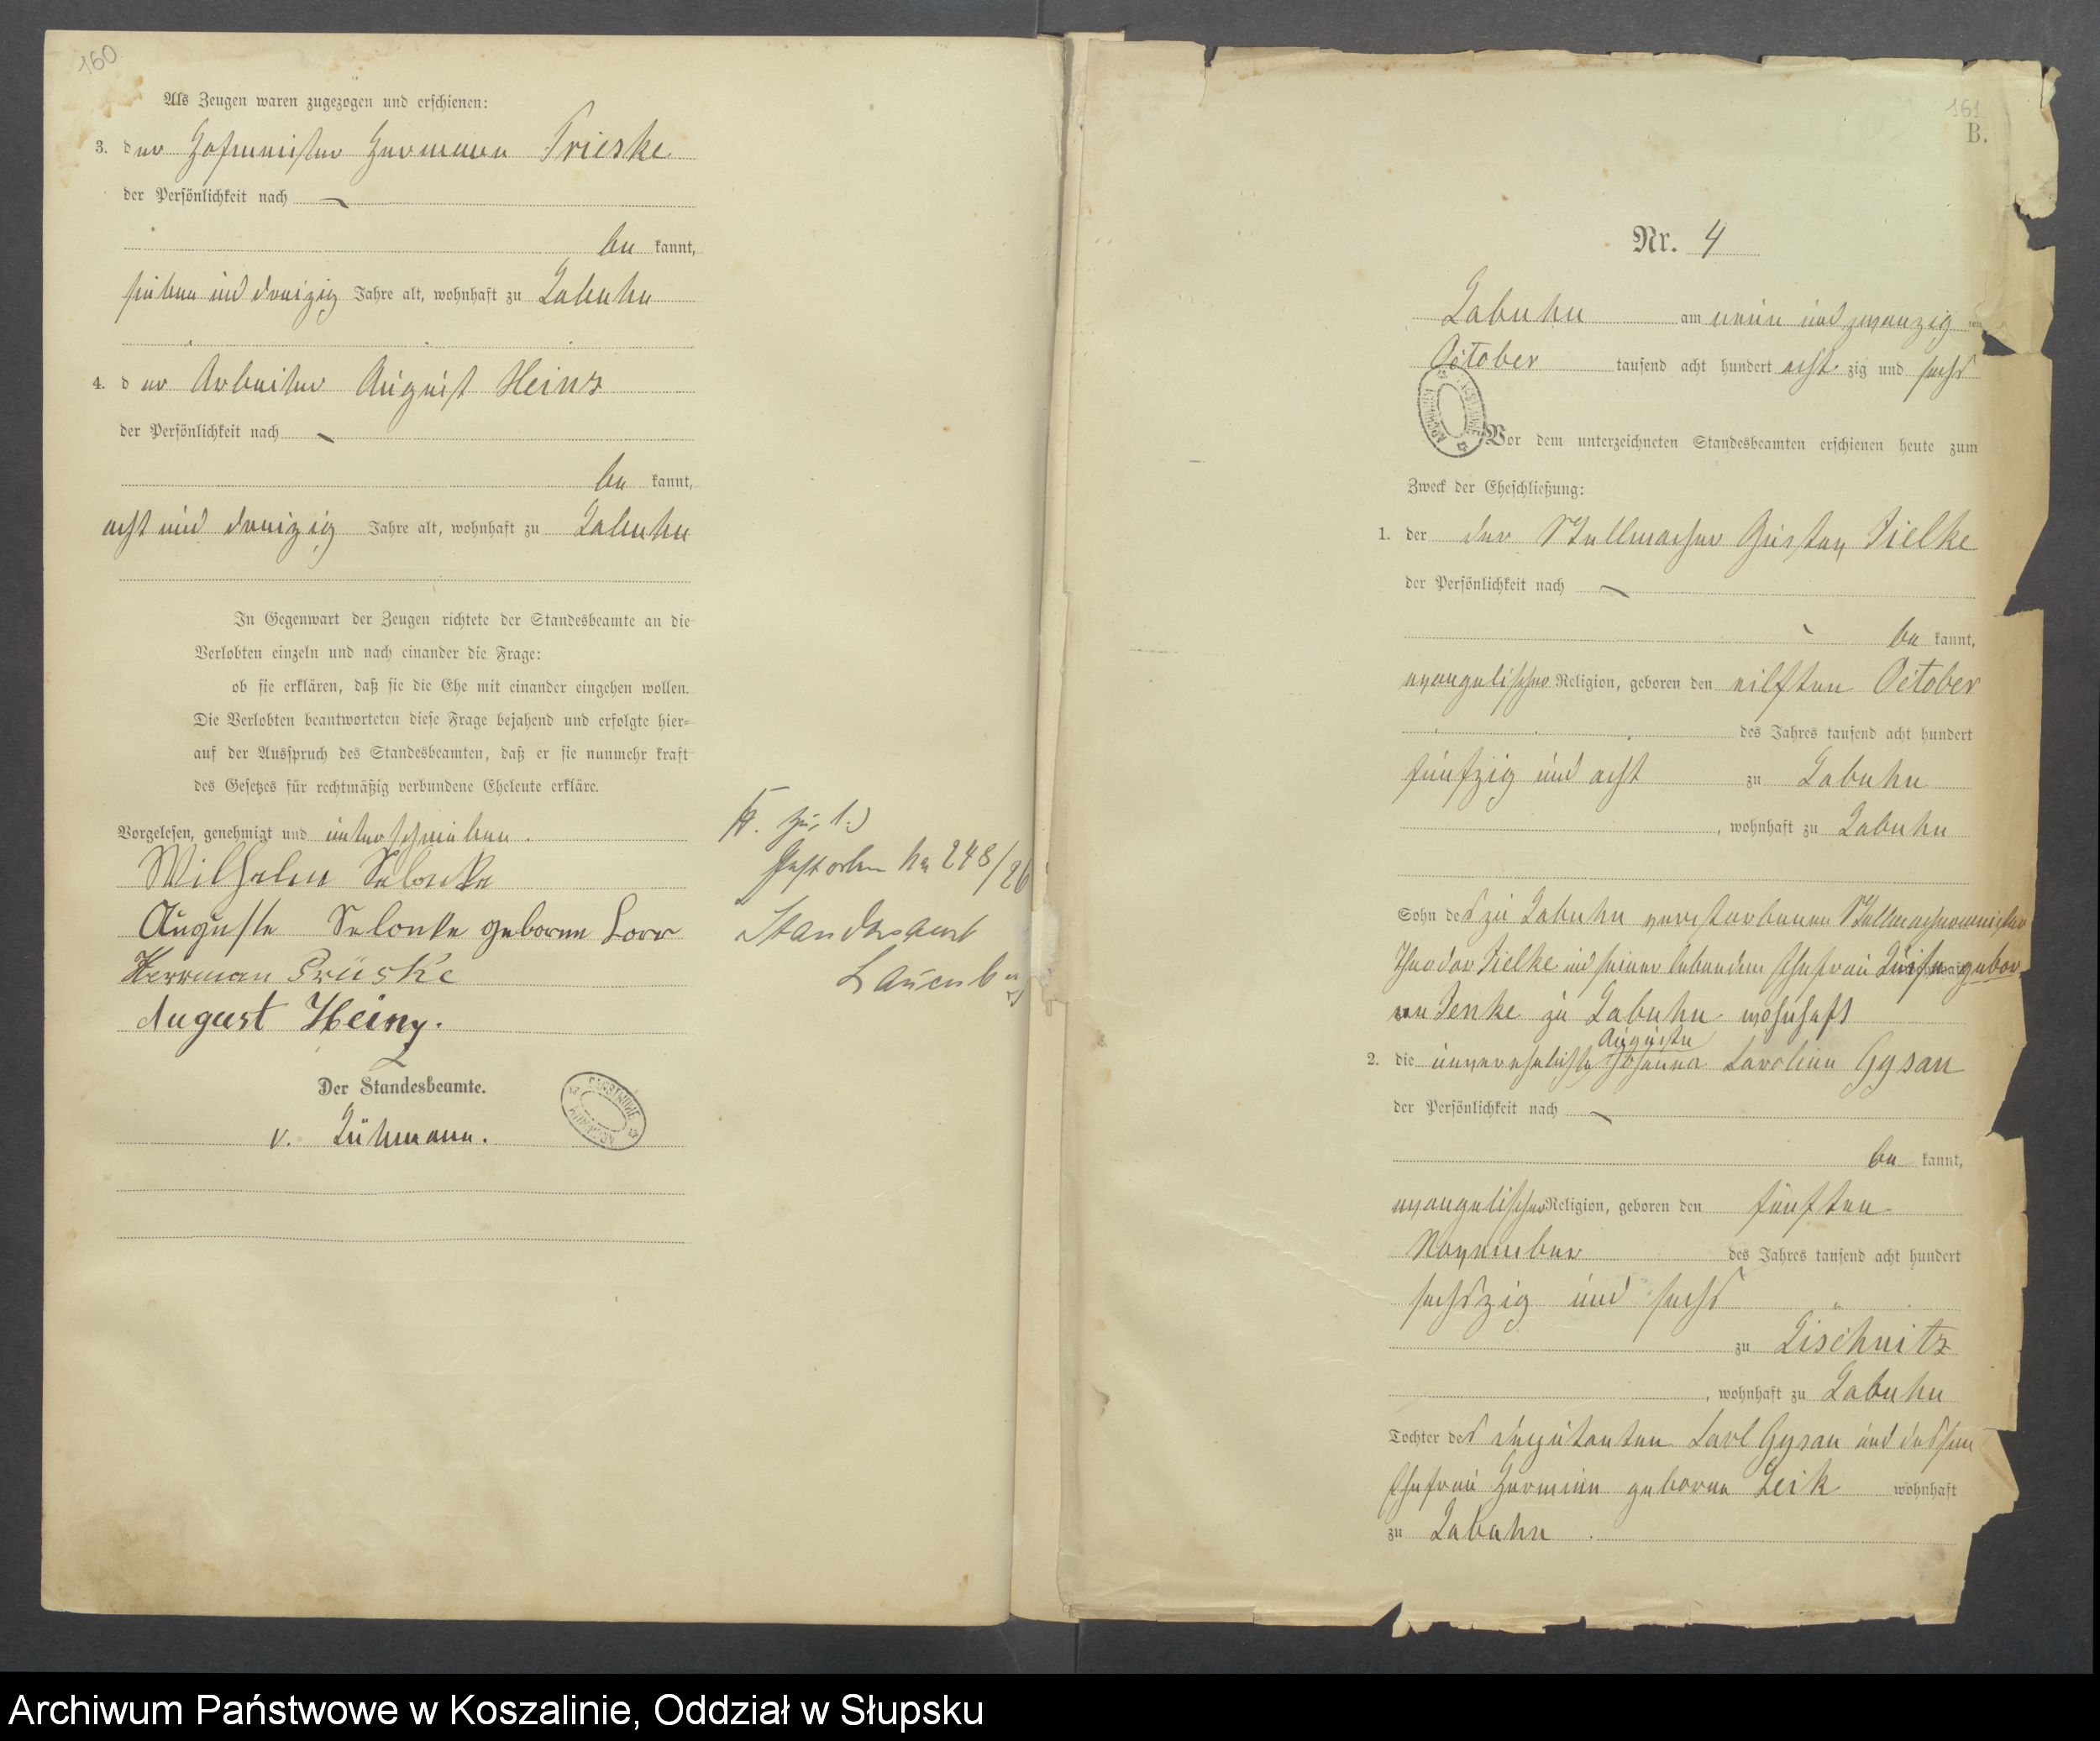 160
Als Zeugen waren zugezogen und erschienen:
3. der Hofmeister Hermann Prieske
der Persönlichkeit nach
be kannt,
sieben und dreizig Jahre alt, wohnhaft zu Labuhn
4. d er Arbeiter August Heinz
der Persönlichkeit nach
be kannt,
acht und dreizig Jahre alt, wohnhaft zu Labuhn
In Gegenwart der Zeugen richtete der Standesbeamte an die
Verlobten einzeln und nach einander die Frage:
ob sie erklären, daß sie die Ehe mit einander eingehen wollen.
Die Verlobten beantworteten diese Frage bejahend und erfolgte hier-
auf der Ausspruch des Standesbeamten, daß er sie nunmehr kraft
des Gesetzes für rechtmäßig verbundene Eheleute erkläre.
Vorgelesen, genehmigt und unterschrieben.
Wilhelm Selonke
Auguste Selonke geborene Lorr
Herrman Prüske
August Heinz.
Der Standesbeamte.
v. Lühmann.
zu 1.)
Gestorben No 248/26
Standesamt
Lauenburg
161
B.
Nr. 4
Labuhn am neun und zwanzig ten
October tausend acht hundert acht zig und sechs
Vor dem unterzeichneten Standesbeamten erschienen heute zum
Zweck der Eheschließung:
1. der der Stellmacher Gustav Zielke
der Persönlichkeit nach
be kannt,
evangelischer Religion, geboren den eilften October
des Jahres tausend acht hundert
fünfzig und acht zu Labuhn
, wohnhaft zu Labuhn
Sohn des zu Labuhn verstorbenen Stellmachermeister
Theodor Zielke und seiner lebenden Ehefrau Luise gebor
nen Zenke zu Labuhn wohnhaft
Auguste
2. die unverehelichte Johanna Caroline Gysan
der Persönlichkeit nach
be kannt,
evangelischer Religion, geboren den fünften
November des Jahres tausend acht hundert
sechszig und sechs
zu Lischnitz
, wohnhaft zu Labuhn
Tochter des Deputanten Carl Gysan und dessen
Ehefrau Hermine geborne Leik wohnhaft
zu Labuhn.
Archiwum Państwowe w Koszalinie, Oddział w Słupsku